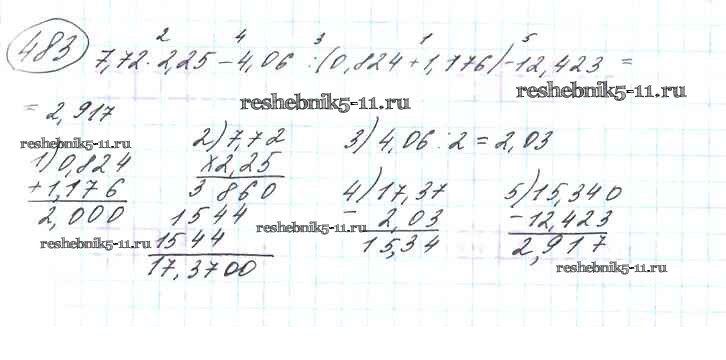 483
2 4 3 1 5
7,72 · 2,25 - 4,06 : (0,824 + 1,176) - 12,423 =
reshebnik5-11.ru reshebnik5-11.ru
= 2,917
reshebnik5-11.ru
1) 0,824
+ 1,176
2,000
reshebnik5-11.ru
2) 7,72
x 2,25
3860
1544
1544
17,3700
3) 4,06 : 2 = 2,03
4) 17,37
- 2,03
15,34
reshebnik5-11.ru
5) 15,340
- 12,423
2,917
reshebnik5-11.ru